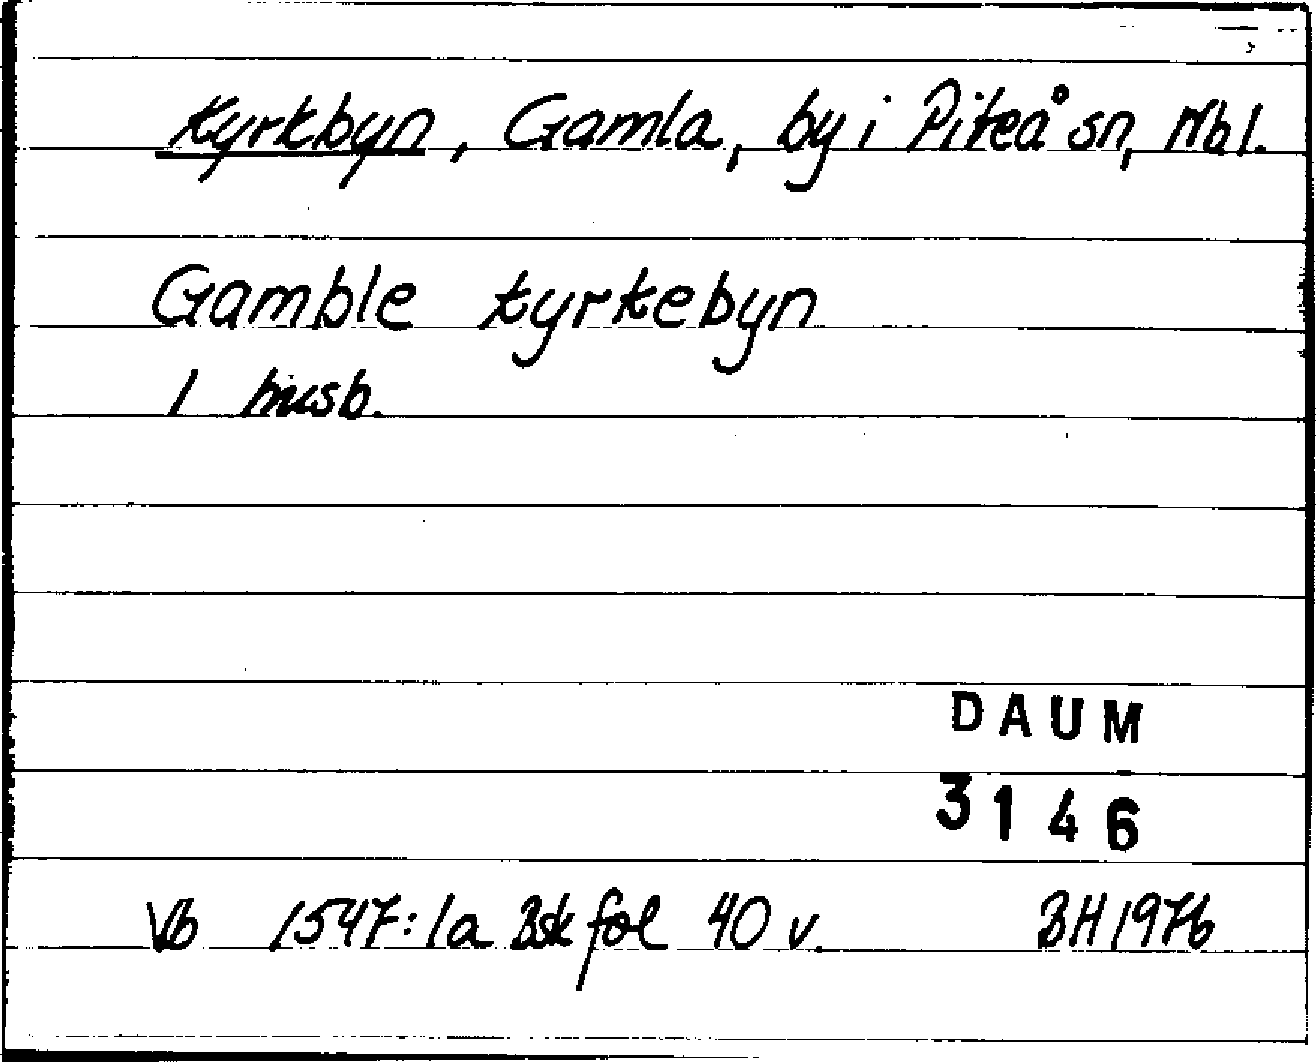 kyrkbyn, Gamla, by i Piteå sn, Nbl.
Gamble kyrkebyn
1 husb.
DAUM
3146
Vb 1547:1a Bsk fol 40 v. BH 1976